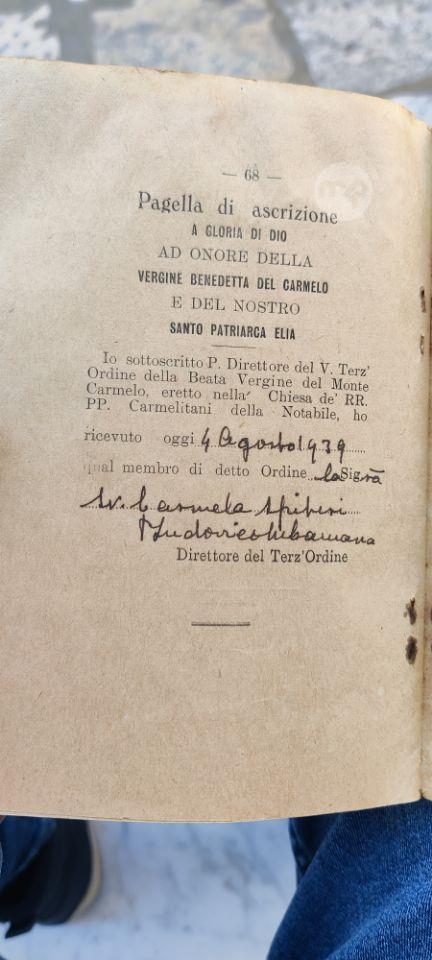 — 68 —
Pagella di ascrizione
A GLORIA DI DIO
AD ONORE DELLA
VERGINE BENEDETTA DEL CARMELO
E DEL NOSTRO
SANTO PATRIARCA ELIA
Io sottoscritto P. Direttore del V. Terz'
Ordine della Beata Vergine del Monte
Carmelo, eretto nella Chiesa de' RR.
PP. Carmelitani della Notabile, ho
ricevuto oggi 4 Agosto 1939
qual membro di detto Ordine la Sigra
Carmela Spiteri
Direttore del Terz'Ordine